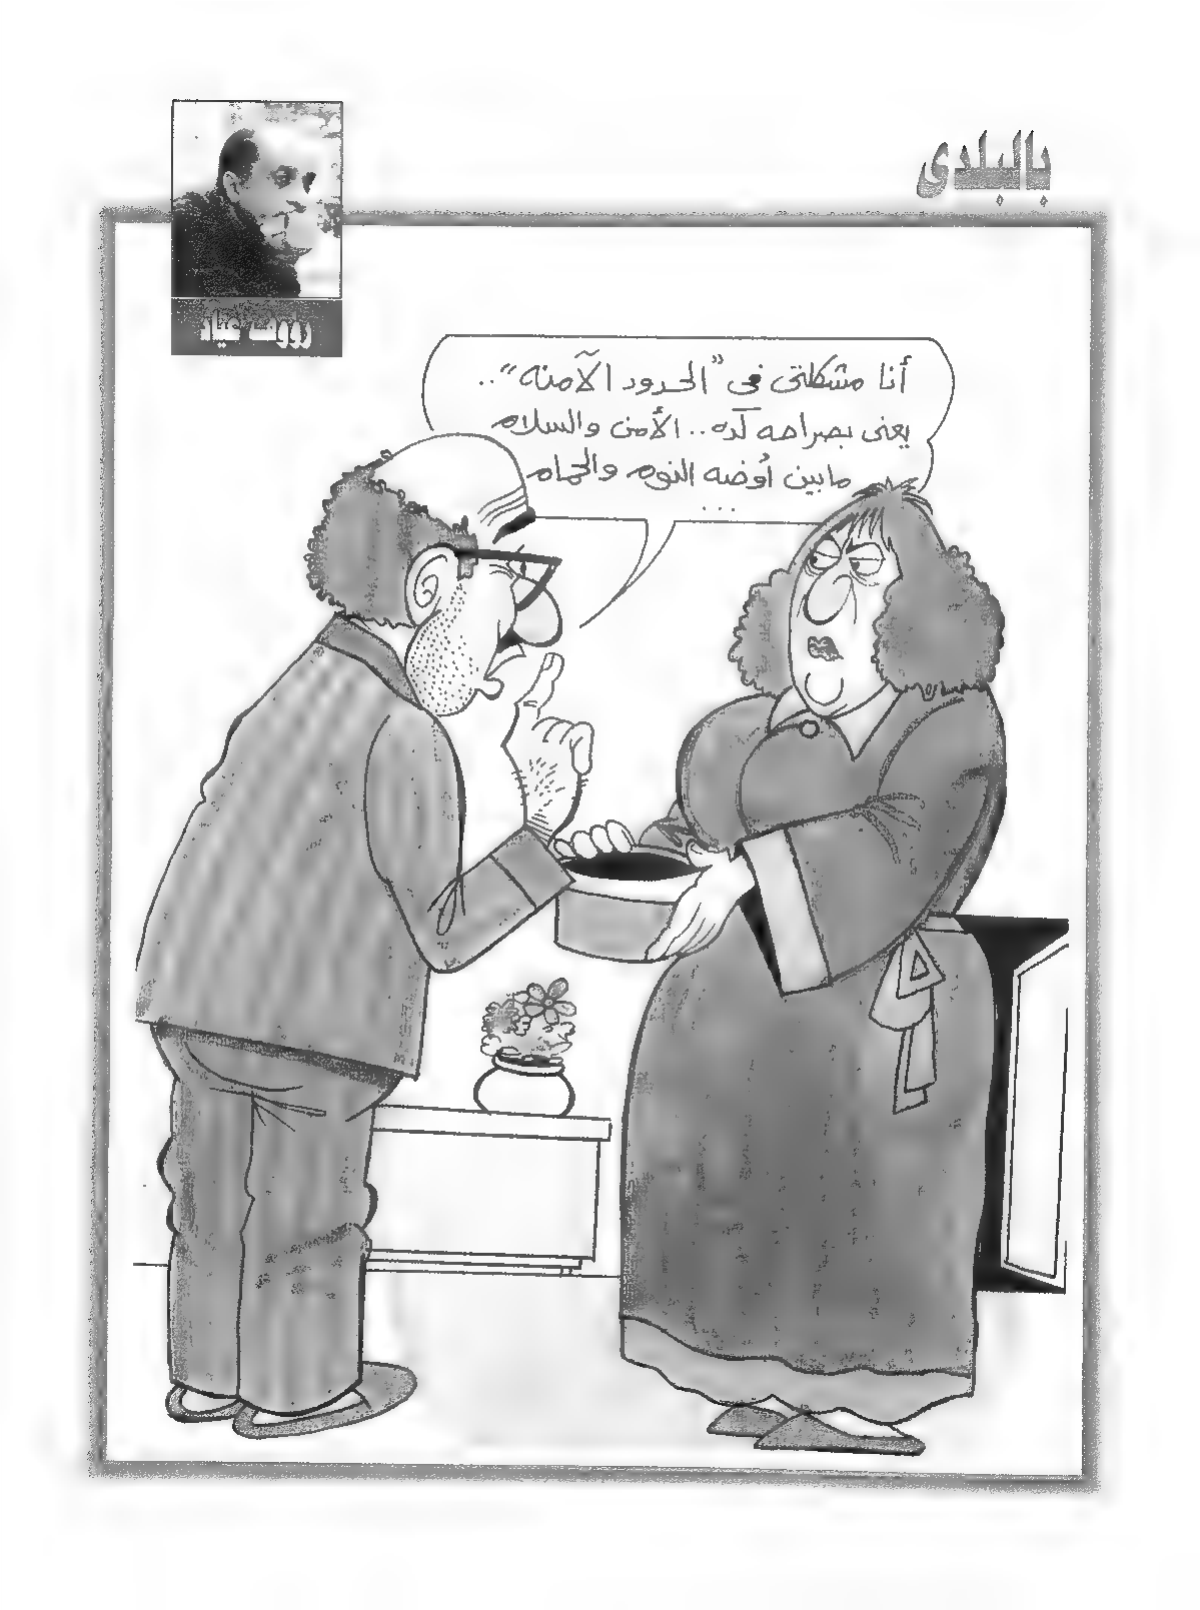 بالبلدى
رؤوف عياد
أنا مشكلتى فى "الحدود الآمنه"..
يعنى بصراحه كده.. الأمن والسلام
مابين أوضه النوم والحمام
...